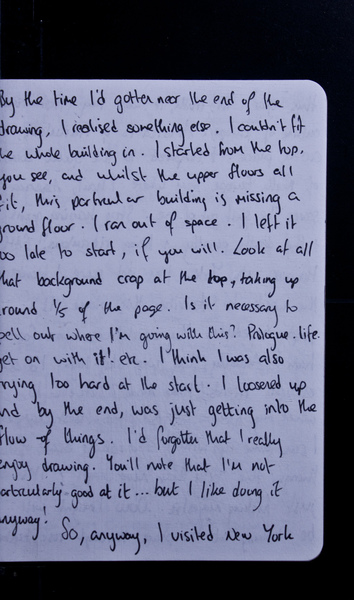 By the time I'd gotten near the end of the
drawing, I realised something else. I couldn't fit
he whole building in. I started from the top,
you see, and whilst the upper floors all
fit, this particular building is missing a
round floor. I ran out of space. I left it
oo late to start, if you will. Look at all
hat background crap at the top, taking up
round 1/5 of the page. Is it necessary to
pell out where I'm going with this? Prologue. life.
get on with it! etc. I think I was also
rying too hard at the start. I loosened up
nd by the end, was just getting into the
flow of things. I'd forgotten that I really
enjoy drawing. You'll note that I'm not
particularly good at it... but I like doing it
nyway!
So, anyway, I visited New York